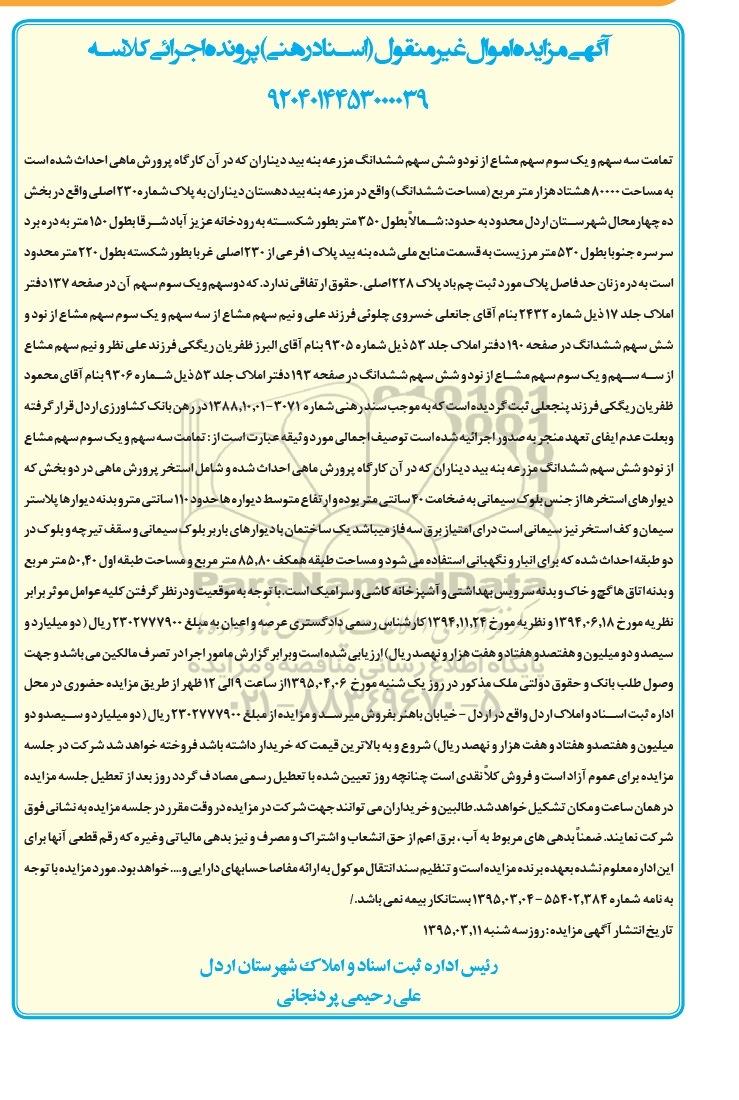 آگهی مزایده اموال غیر منقول (اسناد رهنی) پرونده اجرائی کلاسه
۹۲۰۴۰۱۴۴۵۳۰۰۰۰۳۹
تمامت سه سهم و یک سوم سهم مشاع از نود و شش سهم ششدانگ مزرعه بنه بید دیناران که در آن کارگاه پرورش ماهی احداث شده است
به مساحت ۸۰۰۰۰ هشتاد هزار متر مربع (مساحت ششدانگ) واقع در مزرعه بنه بید دهستان دیناران به پلاک شماره ۲۳۰ اصلی واقع در بخش
ده چهارمحال شهرستان اردل محدود به حدود: شمالاً بطول ۳۵۰ متر بطور شکسته به رودخانه عزیز آباد شرقا بطول ۱۵۰ متر به دره برد
سرسره جنوبا بطول ۵۳۰ متر مرزیست به قسمت منابع ملی شده بنه بید پلاک ۱ فرعی از ۲۳۰ اصلی غربا بطور شکسته بطول ۲۲۰ متر محدود
است به دره زنان حد فاصل پلاک مورد ثبت چم باد پلاک ۲۲۸ اصلی. حقوق ارتفاقی ندارد. که دوسهم و یک سوم سهم آن در صفحه ۱۳۷ دفتر
املاک جلد ۱۷ ذیل شماره ۲۴۳۲ بنام آقای جانعلی خسروی چلوئی فرزند علی و نیم سهم مشاع از سه سهم و یک سوم سهم مشاع از نود و
شش سهم ششدانگ در صفحه ۱۹۰ دفتر املاک جلد ۵۳ ذیل شماره ۹۳۰۵ بنام آقای البرز ظفریان ریگکی فرزند علی نظر و نیم سهم مشاع
از سه سهم و یک سوم سهم مشاع از نود و شش سهم ششدانگ در صفحه ۱۹۳ دفتر املاک جلد ۵۳ ذیل شماره ۹۳۰۶ بنام آقای محمود
ظفریان ریگکی فرزند پنجعلی ثبت گردیده است که به موجب سند رهنی شماره ۳۰۷۱-۱۳۸۸,۱۰,۰۱ در رهن بانک کشاورزی اردل قرار گرفته
وبعلت عدم ایفای تعهد منجر به صدور اجرائیه شده است توصیف اجمالی مورد وثیقه عبارت است از: تمامت سه سهم و یک سوم سهم مشاع
از نود و شش سهم ششدانگ مزرعه بنه بید دیناران که در آن کارگاه پرورش ماهی احداث شده و شامل استخر پرورش ماهی در دو بخش که
دیوارهای استخرها از جنس بلوک سیمانی به ضخامت ۴۰ سانتی متر بوده و ارتفاع متوسط دیواره ها حدود ۱۱۰ سانتی متر و بدنه دیوارها پلاستر
سیمان و کف استخر نیز سیمانی است درای امتیاز برق سه فاز میباشد یک ساختمان با دیوارهای باربر بلوک سیمانی و سقف تیرچه و بلوک در
دو طبقه احداث شده که برای انبار و نگهبانی استفاده می شود و مساحت طبقه همکف ۸۵,۸۰ متر مربع و مساحت طبقه اول ۵۰,۴۰ متر مربع
و بدنه اتاق ها گچ و خاک و بدنه سرویس بهداشتی و آشپزخانه کاشی و سرامیک است. با توجه به موقعیت و درنظر گرفتن کلیه عوامل موثر برابر
نظریه مورخ ۱۳۹۴,۰۶,۱۸ و نظریه مورخ ۱۳۹۴,۱۱,۲۴ کارشناس رسمی دادگستری عرصه و اعیان به مبلغ ۲۳۰۲۷۷۷۹۰۰ ریال (دو میلیارد و
سیصد و دو میلیون و هفتصد و هفتاد و هفت هزار و نهصد ریال) ارزیابی شده است وبرابر گزارش مامور اجرا در تصرف مالکین می باشد و جهت
وصول طلب بانک و حقوق دولتی ملک مذکور در روز یک شنبه مورخ ۱۳۹۵,۰۴,۰۶ از ساعت ۹ الی ۱۲ ظهر از طریق مزایده حضوری در محل
اداره ثبت اسناد و املاک اردل واقع در اردل - خیابان باهنر بفروش میرسد و مزایده از مبلغ ۲۳۰۲۷۷۷۹۰۰ ریال (دو میلیارد و سیصد و دو
میلیون و هفتصد و هفتاد و هفت هزار و نهصد ریال) شروع و به بالاترین قیمت که خریدار داشته باشد فروخته خواهد شد شرکت در جلسه
مزایده برای عموم آزاد است و فروش کلاً نقدی است چنانچه روز تعیین شده با تعطیل رسمی مصادف گردد روز بعد از تعطیل جلسه مزایده
در همان ساعت و مکان تشکیل خواهد شد. طالبین و خریداران می توانند جهت شرکت در مزایده در وقت مقرر در جلسه مزایده به نشانی فوق
شرکت نمایند. ضمناً بدهی های مربوط به آب، برق اعم از حق انشعاب و اشتراک و مصرف و نیز بدهی مالیاتی و غیره که رقم قطعی آنها برای
این اداره معلوم نشده بعهده برنده مزایده است و تنظیم سند انتقال موکول به ارائه مفاصا حسابهای دارایی و.... خواهد بود. مورد مزایده با توجه
به نامه شماره ۵۵۴۰۲,۳۸۴ - ۱۳۹۵,۰۳,۰۴ بستانکار بیمه نمی باشد./
تاریخ انتشار آگهی مزایده: روز سه شنبه ۱۳۹۵,۰۳,۱۱
رئیس اداره ثبت اسناد و املاک شهرستان اردل
علی رحیمی پردنجانی
ParsNamadData
پایگاه اطلاع رسانی مناقصه و مزایده
۰۲۱-۸۸۳۴۹۶۷۰-۵